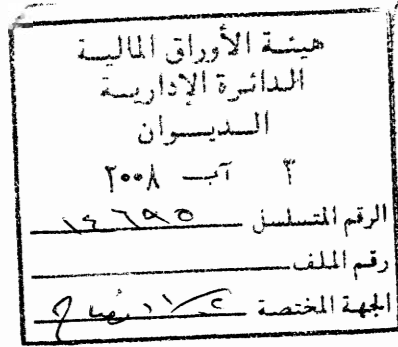 هيئة الأوراق المالية
الدائرة الإدارية
الديوان
٣ آب ٢٠٠٨
الرقم المتسلسل ١٤٦٩٥
رقم الملف
الجهة المختصة